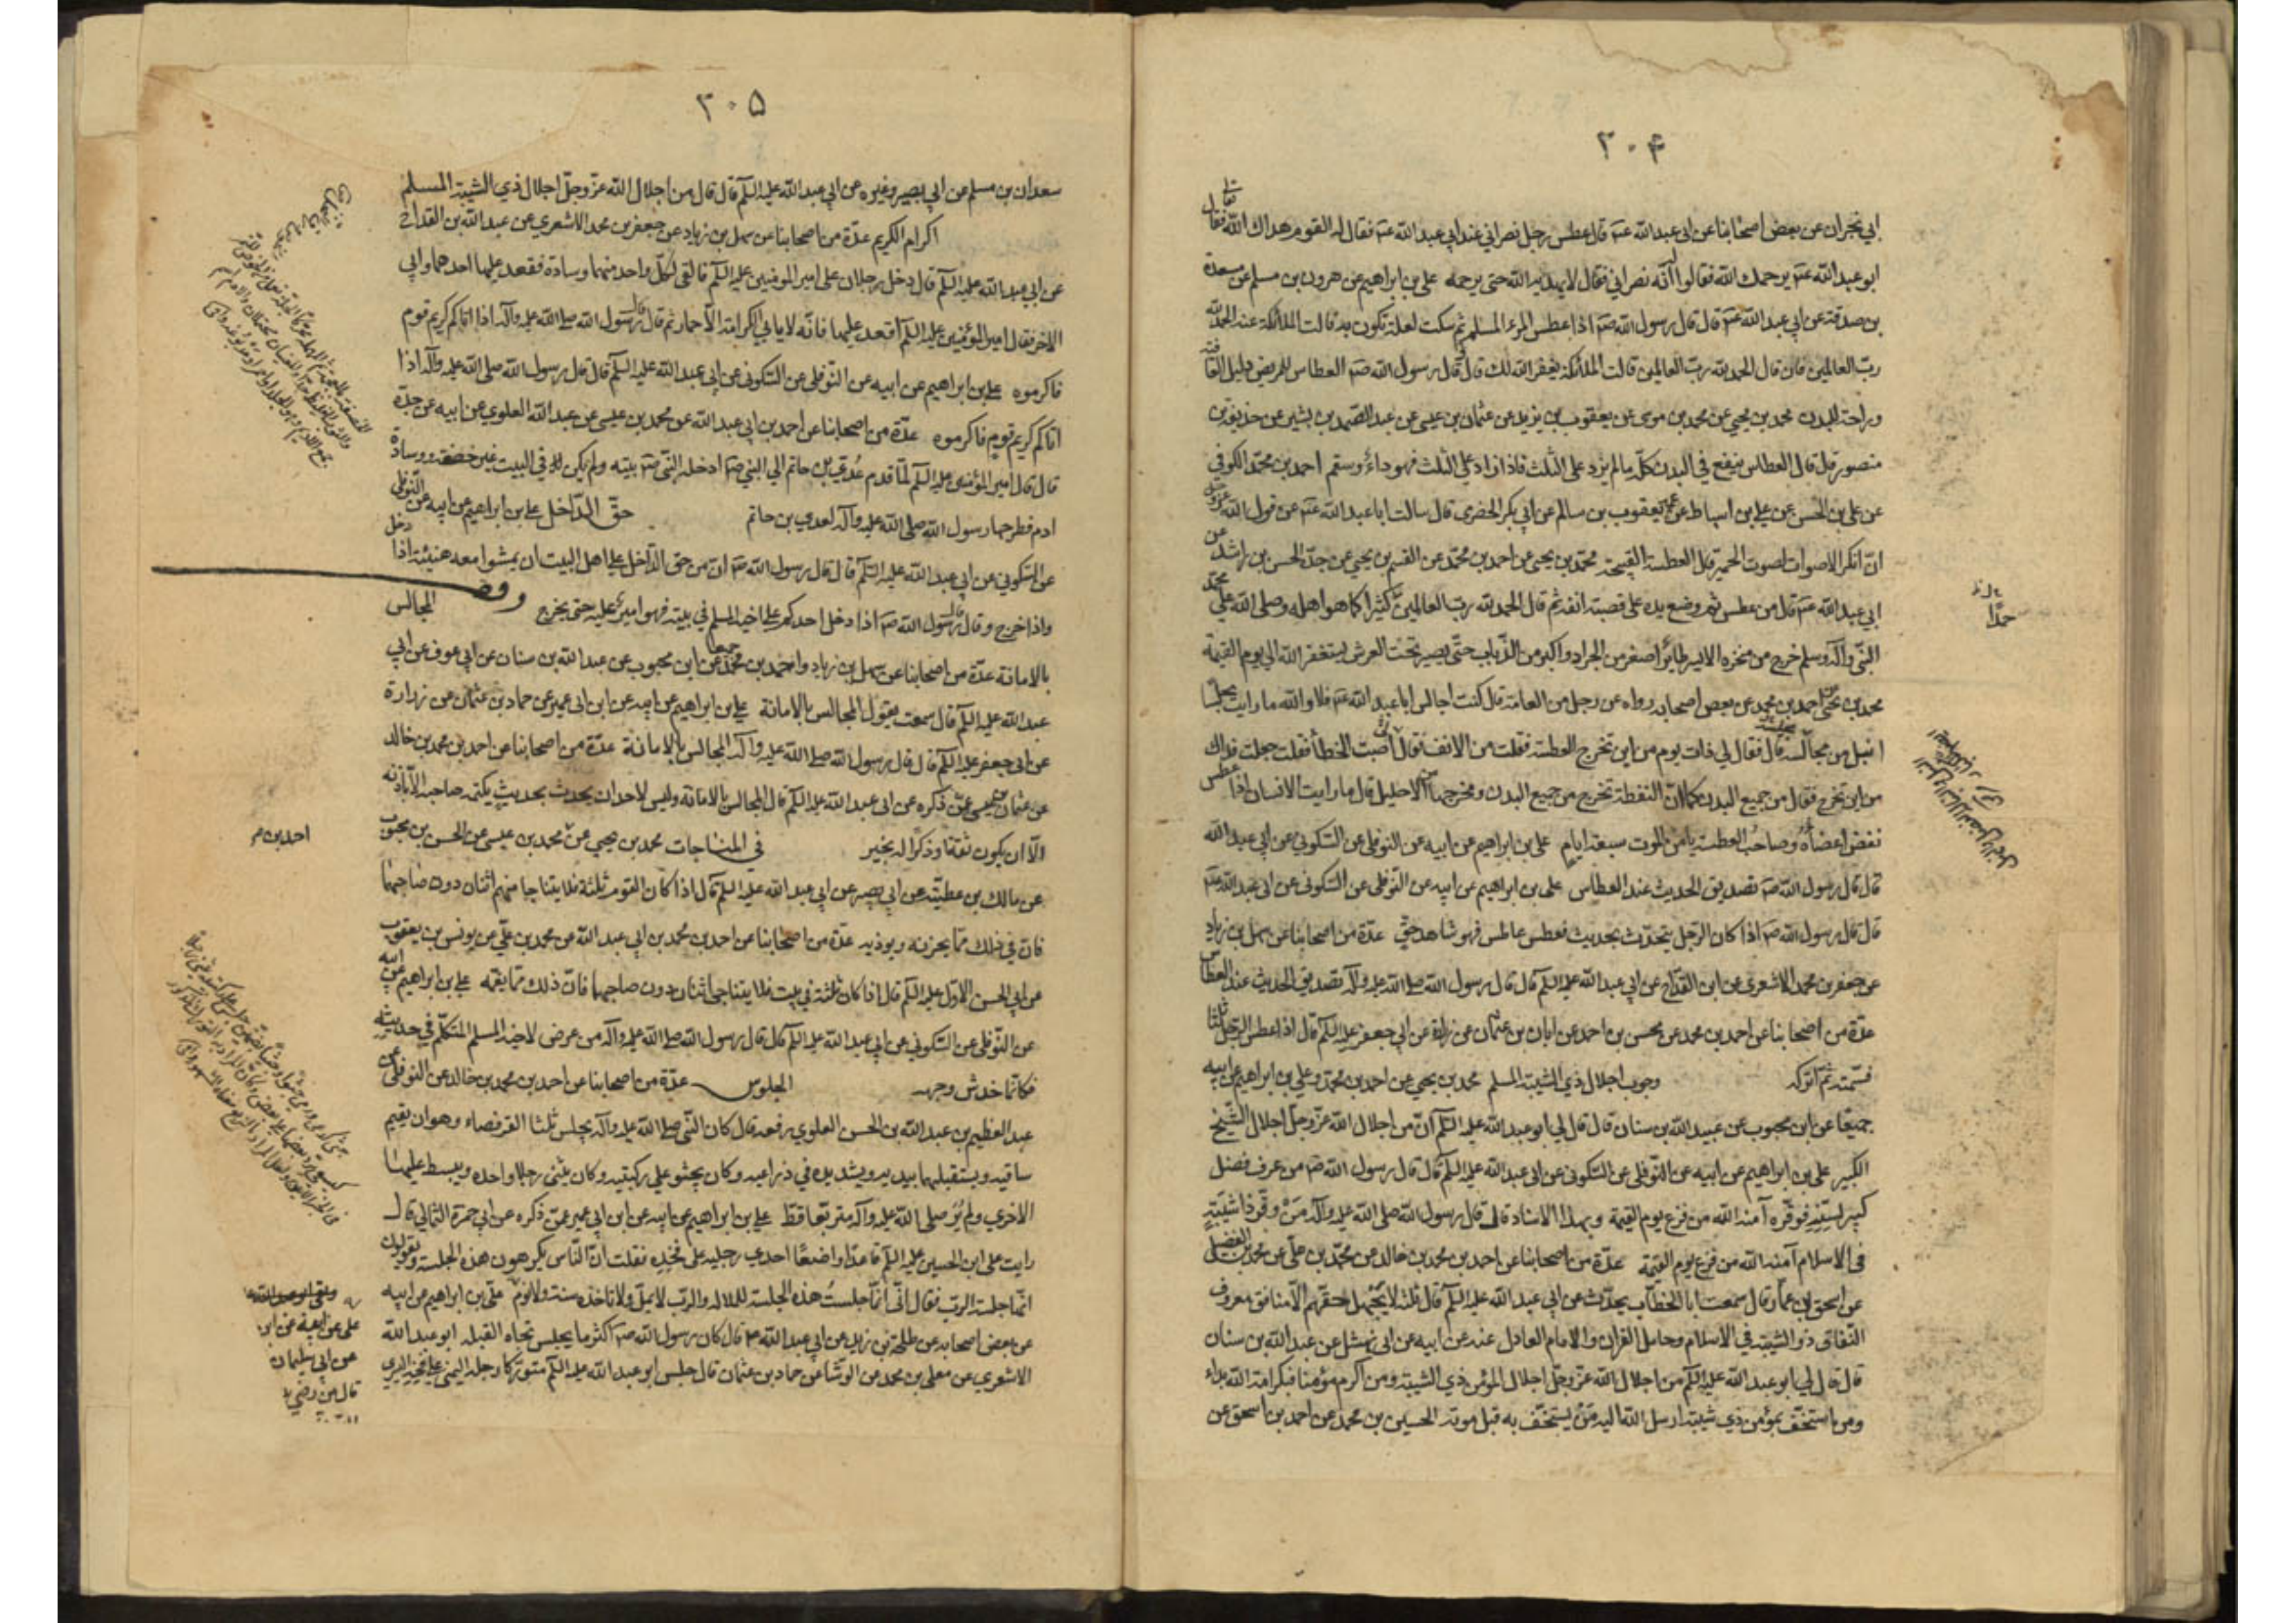 ٣٠۴
ابي نجران عن بعض اصحابنا عن ابي عبد الله عم قال عطس رجل نصراني عند ابي عبد الله عم فقال له القوم هداك الله فقال
ابو عبد الله عم يرحمك الله فقالوا له انه نصراني فقال لا يهديه الله حتى يرحمه علي بن ابراهيم عن هرون بن مسلم عن مسعدة
بن صدقة عن ابي عبد الله عم قال قال رسول الله صم اذا عطس المرء المسلم ثم سكت لعلة تكون به قالت الملائكة عنه الحمد لله
رب العالمين فان قال الحمد لله رب العالمين قالت الملائكة يغفر الله لك قال و قال رسول الله صم العطاس للمريض دليل العافية
وراحة للبدن محمد بن يحيى عن محمد بن موسى عن يعقوب بن يزيد عن عثمان بن عيسى عن عبد الصمد بن بشير عن حذيفة بن
منصور قال قال العطاس ينفع في البدن كله ما لم يزد على الثلث فاذا زاد على الثلث فهو داء وسقم احمد بن محمد الكوفي
عن علي بن الحسن عن علي بن اسباط عن عمه يعقوب بن سالم عن ابي بكر الحضرمي قال سالت ابا عبد الله عم عن قول الله عز وجل
ان انكر الاصوات لصوت الحمير قال العطسة القبيحة محمد بن يحيى عن احمد بن محمد عن القسم بن يحيى عن جده الحسن بن راشد عن
ابي عبد الله عم قال من عطس ثم وضع يده على قصبة انفه ثم قال الحمد لله رب العالمين كثيرا كما هو اهله وصلى الله على محمد
حمدا
النبي وآله وسلم خرج من منخره الايسر طائر اصغر من الجراد واكبر من الذباب حتى يصير تحت العرش يستغفر الله الى يوم القيمة
محمد بن يحيى عن احمد بن محمد عن بعض اصحابه رواه عن رجل من العامة قال كنت اجالس ابا عبد الله عم فلا والله ما رايت مجلسا
انبل من مجالسه قال فقال لي ذات يوم من اين تخرج العطسة فقلت من الانف فقال لي اصبت الخطأ فقلت جعلت فداك
من اين تخرج فقال من جميع البدن كما ان النطفة تخرج من جميع البدن ومخرجها من الاحليل قال ما رايت الانسان اذا عطس
نفض اعضاؤه وصاحب العطسة يامن الموت سبعة ايام علي بن ابراهيم عن ابيه عن النوفلي عن السكوني عن ابي عبد الله
قال قال رسول الله صم تصديق الحديث عند العطاس علي بن ابراهيم عن ابيه عن النوفلي عن السكوني عن ابي عبد الله عم
قال قال رسول الله صم اذا كان الرجل يتحدث بحديث فعطس عاطس فهو شاهد حق عدة من اصحابنا عن سهل بن زياد
عن جعفر بن محمد الاشعري عن ابن القداح عن ابي عبد الله عليه السلم قال قال رسول الله صلى الله عليه وآله تصديق الحديث عند العطاس
عدة من اصحابنا عن احمد بن محمد عن محسن بن احمد عن ابان بن عثمان عن زرارة عن ابي جعفر عليه السلم قال اذا عطس الرجل ثلثا
فسمته ثم اتركه وجوب اجلال ذي الشيبة المسلم محمد بن يحيى عن احمد بن محمد وعلي بن ابراهيم عن ابيه
جميعا عن ابن محبوب عن عبد الله بن سنان قال قال لي ابو عبد الله عليه السلم ان من اجلال الله عز وجل اجلال الشيخ
الكبير علي بن ابراهيم عن ابيه عن النوفلي عن السكوني عن ابي عبد الله عليه السلم قال قال رسول الله صم من عرف فضل
كبير لسنه فوقره آمنه الله من فزع يوم القيمة وبهذا الاسناد قال قال رسول الله صلى الله عليه وآله من وقر ذا شيبة
في الاسلام آمنه الله من فزع يوم القيمة عدة من اصحابنا عن احمد بن محمد بن خالد عن محمد بن علي عن محمد بن الفضيل
عن اسحق بن عمار قال سمعت ابا الخطاب يحدث عن ابي عبد الله عليه السلم قال ثلثة لا يجهل حقهم الا منافق معروف
النفاق ذو الشيبة في الاسلام وحامل القران والامام العادل عنه عن ابيه عن ابي نهشل عن عبد الله بن سنان
قال قال لي ابو عبد الله عليه السلم من اجلال الله عز وجل اجلال المؤمن ذي الشيبة ومن اكرم مؤمنا فبكرامة الله بداء
ومن استخف بمؤمن ذي شيبة ارسل الله اليه من يستخف به قبل موته الحسين بن محمد عن احمد بن اسحق عن
٣٠۵
سعدان بن مسلم عن ابي بصير وغيره عن ابي عبد الله عليه السلم قال قال من اجلال الله عز وجل اجلال ذي الشيبة المسلم
اكرام الكريم عدة من اصحابنا عن سهل بن زياد عن جعفر بن محمد الاشعري عن عبد الله بن القداح
عن ابي عبد الله عليه السلم قال دخل رجلان على امير المومنين عليه السلم فالقى لكل واحد منهما وسادة فقعد عليها احدهما وابى
الاخر فقال امير المؤمنين عليه السلم اقعد عليها فانه لا يابى الكرامة الا حمار ثم قال قال رسول الله صلى الله عليه وآله اذا اتاكم كريم قوم
فاكرموه علي بن ابراهيم عن ابيه عن النوفلي عن السكوني عن ابي عبد الله عليه السلم قال قال رسول الله صلى الله عليه وآله اذا
اتاكم كريم قوم فاكرموه عدة من اصحابنا عن احمد بن ابي عبد الله عن محمد بن عيسى عن عبد الله العلوي عن ابيه عن جده
قال قال امير المؤمنين عليه السلم لما قدم عدي بن حاتم الى النبي صم ادخله النبي صم بيته ولم يكن في البيت غير خصفة ووسادة
ادم فطرحها رسول الله صلى الله عليه وآله لعدي بن حاتم حق الداخل علي بن ابراهيم عن ابيه عن النوفلي
عن السكوني عن ابي عبد الله عليه السلم قال قال رسول الله صم ان من حق الداخل على اهل البيت ان يمشوا معه هنيئة اذا دخل
واذا خرج وقال قال رسول الله صم اذا دخل احدكم على اخيه المسلم في بيته فهو امير عليه حتى يخرج المجالس
بالامانة عدة من اصحابنا عن سهل بن زياد واحمد بن محمد جميعا عن ابن محبوب عن عبد الله بن سنان عن ابي عوف عن ابي
عبد الله عليه السلم قال سمعته يقول المجالس بالامانة علي بن ابراهيم عن ابيه عن ابن ابي عمير عن حماد بن عثمان عن زرارة
عن ابي جعفر عليه السلم قال قال رسول الله صلى الله عليه وآله المجالس بالامانة عدة من اصحابنا عن احمد بن محمد بن خالد
عن عثمان بن عيسى عمن ذكره عن ابي عبد الله عليه السلم قال المجالس بالامانة وليس لاحد ان يحدث بحديث يكتمه صاحبه الا باذنه
الا ان يكون ثقة او ذكرا له بخير في المناجات محمد بن يحيى عن محمد بن عيسى عن الحسن بن محبوب
احمد بن م
عن مالك بن عطية عن ابي بصير عن ابي عبد الله عليه السلم قال اذا كان القوم ثلثة فلا يتناجا منهم اثنان دون صاحبهما
فان في ذلك مما يحزنه ويوذيه عدة من اصحابنا عن احمد بن محمد بن ابي عبد الله عن محمد بن علي عن يونس بن يعقوب
عن ابي الحسن الاول عليه السلم قال اذا كان ثلثة في بيت فلا يتناجى اثنان دون صاحبهما فان ذلك مما يغمه علي بن ابراهيم عن ابيه
عن النوفلي عن السكوني عن ابي عبد الله عليه السلم قال قال رسول الله صلى الله عليه وآله من عرض لاخيه المسلم المتكلم في حديثه
فكانما خدش وجهه الجلوس عدة من اصحابنا عن احمد بن محمد بن خالد عن النوفلي عن
عبد العظيم بن عبد الله بن الحسن العلوي رفعه قال كان النبي صلى الله عليه وآله يجلس ثلثا القرفصاء وهو ان يقيم
ساقيه ويستقبلهما بيديه ويشد يده في ذراعيه وكان يجثو على ركبتيه وكان يثني رجلا واحده ويبسط عليها
الاخرى ولم يُر صلى الله عليه وآله متربعا قط علي بن ابراهيم عن ابيه عن ابن ابي عمير عمن ذكره عن ابي حمزة الثمالي قال
رايت علي ابن الحسين عليه السلم قاعدا واضعا احدى رجليه على فخذه فقلت ان الناس يكرهون هذه الجلسة ويقولون
انها جلسة الرب فقال اني انما جلست هذه الجلسة للملالة والرب لا يمل ولا تاخذه سنة ولا نوم علي بن ابراهيم عن ابيه
عن بعض اصحابه عن طلحة بن زيد عن ابي عبد الله عم قال كان رسول الله صم اكثر ما يجلس تجاه القبلة ابو عبد الله
الاشعري عن معلى بن محمد عن الوشا عن حماد بن عثمان قال جلس ابو عبد الله عليه السلم متوركا رجله اليمنى على فخذه اليسرى
عن ابي سليمان